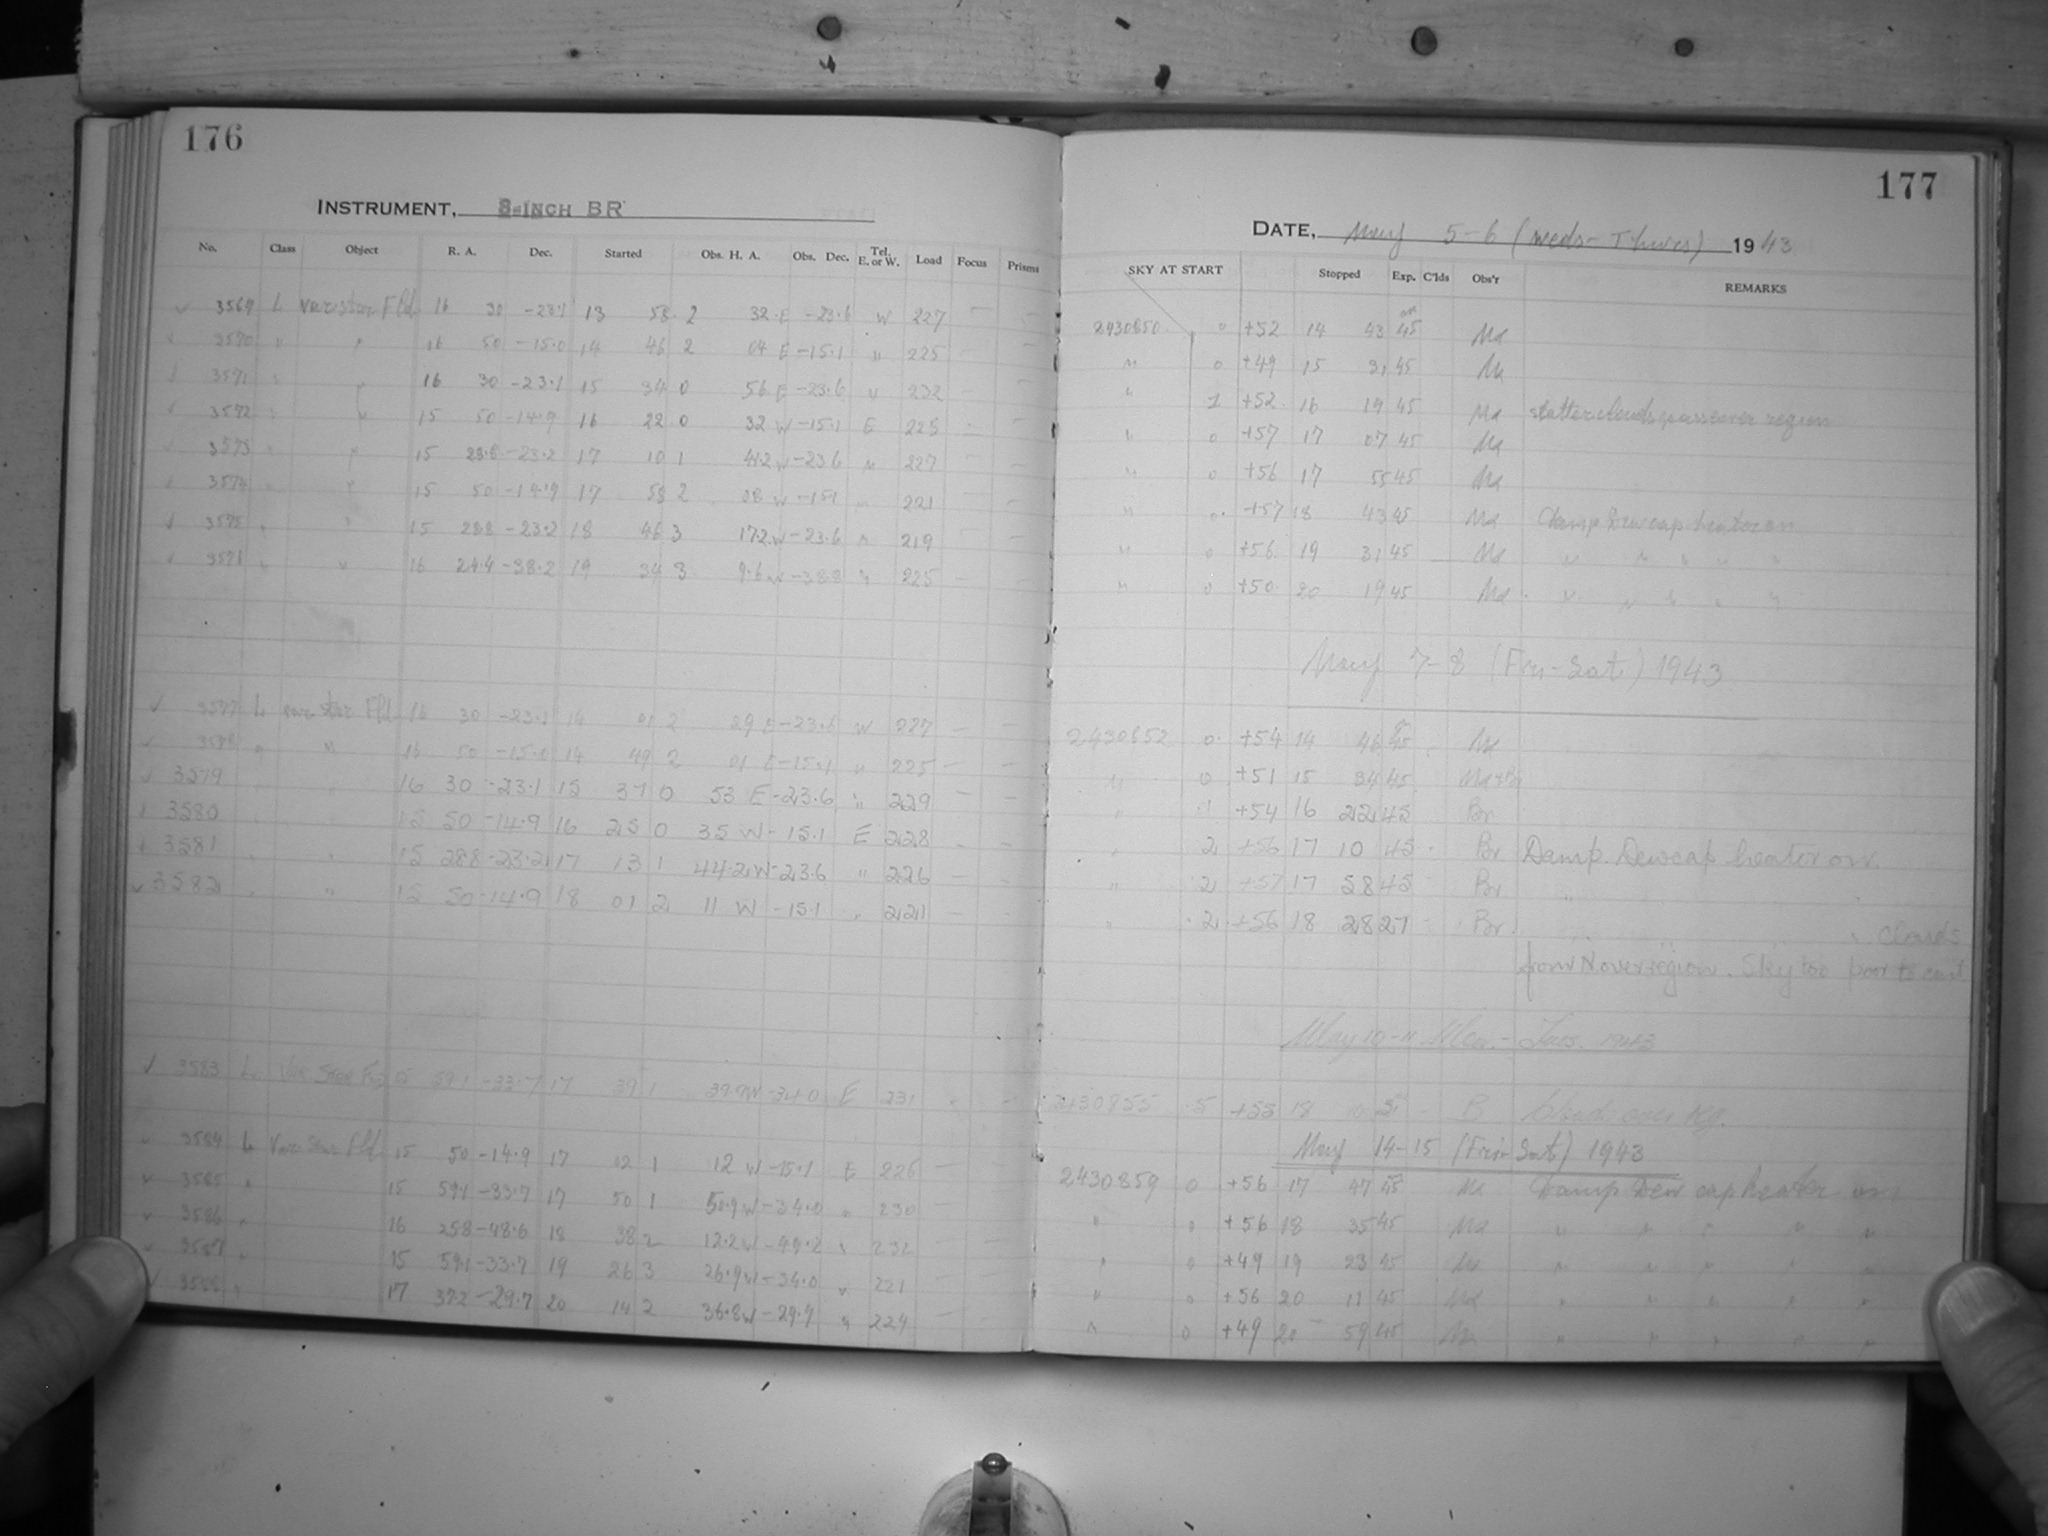 176
INSTRUMENT, 8-INCH BR
No. Class Object R. A. Dec. Started Obs. H. A. Obs. Dec. Tel. E. or W. Load Focus Prisms
3569 L Var. star Fld. 16 30 -23.1 13 58 2 32 E -23.6 W 227 — —
3570 " " 16 50 -15.0 14 46 2 04 E -15.1 " 225 — —
3571 " " 16 30 -23.1 15 34 0 56 E -23.6 " 232 — —
3572 " " 15 50 -14.9 16 22 0 32 W -15.1 E 225 — —
3573 " " 15 28.8 -23.2 17 10 1 41.2 W -23.6 " 227 — —
3574 " " 15 50 -14.9 17 58 2 08 W -15.1 " 221 — —
3575 " " 15 28.8 -23.2 18 46 3 17.2 W -23.6 " 219 — —
3576 " " 16 24.4 -38.2 19 34 3 9.6 W -38.8 " 225 — —
3577 L var star Fld. 16 30 -23.1 14 01 2 29 E -23.6 W 227 — —
3578 " " 16 50 -15.0 14 49 2 01 E -15.1 " 225 — —
3579 " " 16 30 -23.1 15 37 0 53 E -23.6 " 229 — —
3580 " " 15 50 -14.9 16 25 0 35 W -15.1 E 228 — —
3581 " " 15 28.8 -23.2 17 13 1 44.2 W -23.6 " 226 — —
3582 " " 15 50 -14.9 18 01 2 11 W -15.1 " 221 — —
3583 L Var Star Fld 15 59.1 -33.7 17 39 1 39.9 W -34.0 E 231 — —
3584 L Var. star Fld. 15 50 -14.9 17 02 1 12 W -15.1 E 226 — —
3585 " 15 59.1 -33.7 17 50 1 50.9 W -34.0 " 230 —
3586 " 16 25.8 -48.6 18 38 2 12.2 W -49.2 " 232 — —
3587 " 15 59.1 -33.7 19 26 3 26.9 W -34.0 " 221 — —
3588 " 17 37.2 -29.7 20 14 2 36.8 W -29.9 " 224 — —
177
DATE, May 5-6 (Weds-Thurs) 1943
SKY AT START Stopped Exp. C'lds Obs'r REMARKS
2430850 0 +52 14 43 45 Md
" 0 +49 15 31 45 Md
" 1 +52 16 19 45 Md Scatter clouds pass over region
" 0 +57 17 07 45 Md
" 0 +56 17 55 45 Md
" 0 +57 18 43 45 Md Damp Dewcap heater on
" 0 +56 19 31 45 Md " " " " "
" 0 +50 20 19 45 Md " " " " "
May 7-8 (Fri-Sat) 1943
2430852 0 +54 14 46 45 Md
" 0 +51 15 34 45 Md & Br
" 1 +54 16 22 45 Br
" 2 +56 17 10 45 Br Damp. Dewcap heater on.
" 2 +57 17 58 45 Br "
" 2 +56 18 28 27 Br " " Clouds
from N over region. Sky too poor to cont
May 10-11 Mon.-Tues. 1943
2430855 5 +55 18 B Clouds over reg.
May 14-15 (Fri-Sat) 1943
2430859 0 +56 17 47 45 Md Damp Dew cap heater on
" 0 +56 18 35 45 Md " " " " "
" 0 +49 19 23 45 Md " " " " "
" 0 +56 20 11 45 Md " " " " "
" 0 +49 20 59 45 Md " " " " "